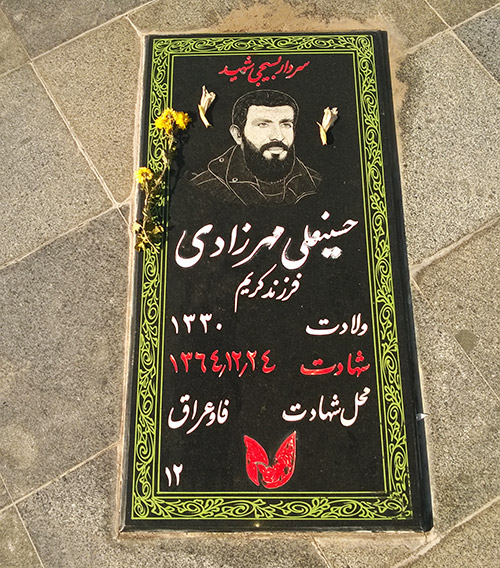 سردار بسیجی شهید
حسینعلی مهرزادی
فرزند کریم
ولادت ۱۳۳۰
شهادت ۱۳۶۴٫۱۲٫۲۴
محل شهادت فاو عراق
۱۲